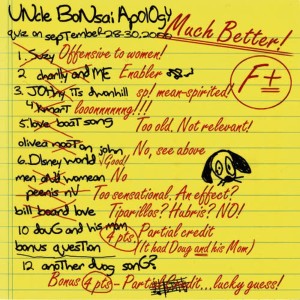 UNcle BoNsai Apology
quiz on september 28-30, 2006
Much Better!
F+
1. Suzy Offensive to women!
2. charity and ME Enabler
3. JOhny its downhill sp! mean-spirited!
4. Knart looonnnnnng!!!
5. love boat song Too old. Not relevant!
olivea nooton john No, see above
6. Disney world √Good!
men and women No
peenis nV Too sensational. An effect?
bill board love Tiparillos? Hubris? NO!
10 douG and his mom 4 pts. Partial credit
(It had Doug and his Mom)
bonus question
12. another duog sonG?
Bonus 4 pts - Partial Credit... lucky guess!